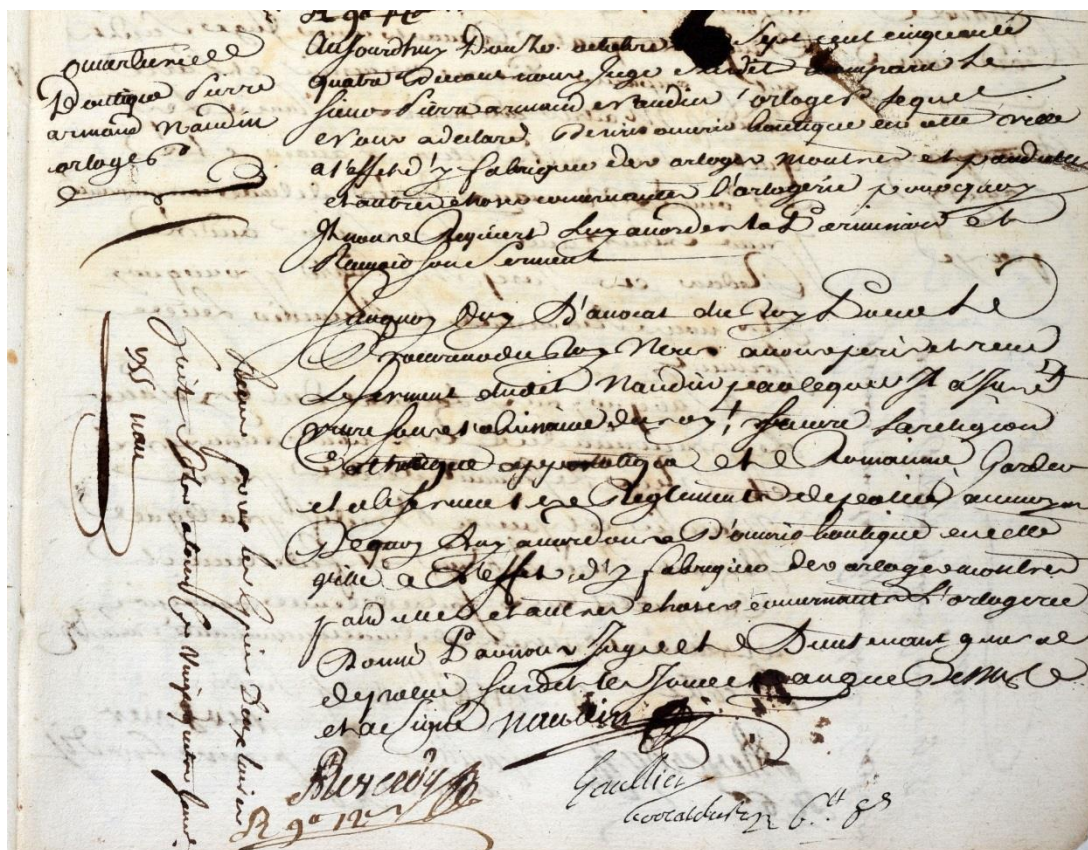 ouverture de
Boutique Pierre
armand Naudin
orloger
R 9d 12d
Aujourdhuy Douze octobre Sept cent cinquante
quatre devant nous Juge susdit comparu Le
sieur Pierre armand Naudin orloger lequel
Nous a declaré desirer ouvrir boutique en cette ville
a l'effet d'y fabriquer des orloges montres et pandulles
et autres choses concernantes l'orlogerie pourquoy
Il nous Requiert Luy accorder la Permission et
Recevoir son Serment
Surquoy ouy L'avocat du Roy Pour Le
Procureur du Roy Nous avons pris et receu
Le serment dudit Naudin par lequel Il a Juré
vivre sous l'obeissance du roy, suivre la religion
Catholique appostolique et Romaine, Garder
et observer les Reglements de police au moyen
De quoy Luy accordons D'ouvrir boutique en cette
ville a L'effet d'y fabriquer des orloges montres
pandulles et autres choses concernantes L'orlogerie
Donné Par nous Juge et Lieutenant general
de police susdit les Jour et an que Dessus
et a Signé Naudin
Gaullier
R 9d 12d
6lt 8s